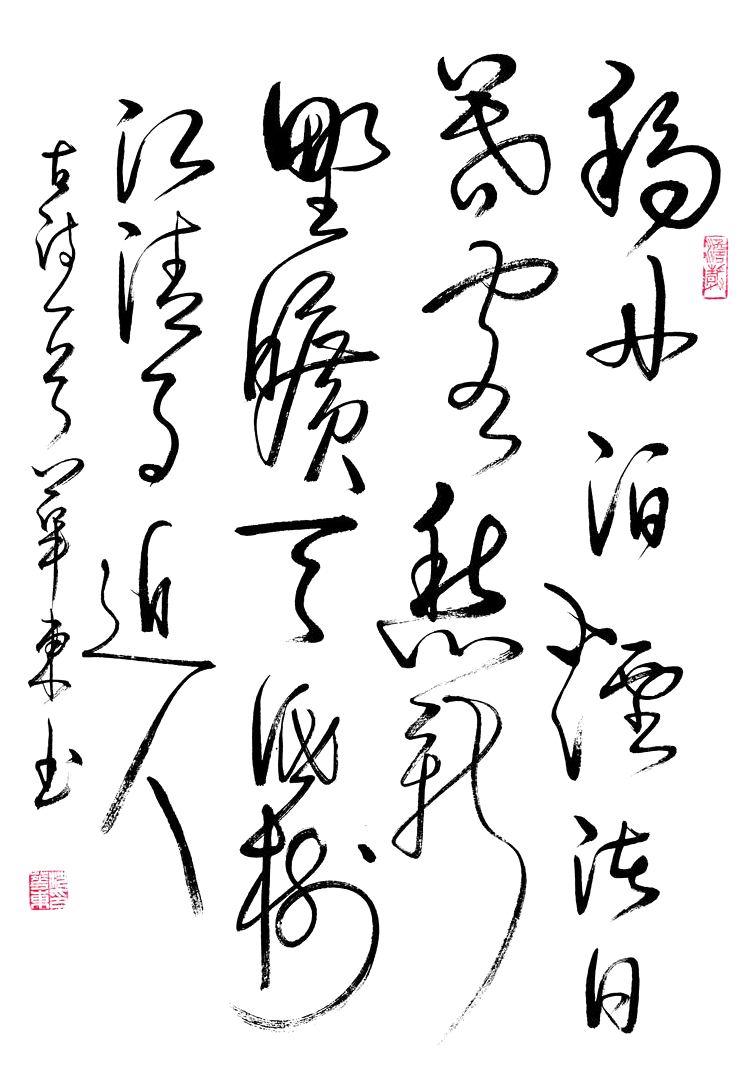 移舟泊煙渚日
暮客愁新
野曠天低樹
江清月近人
古诗一首華東书